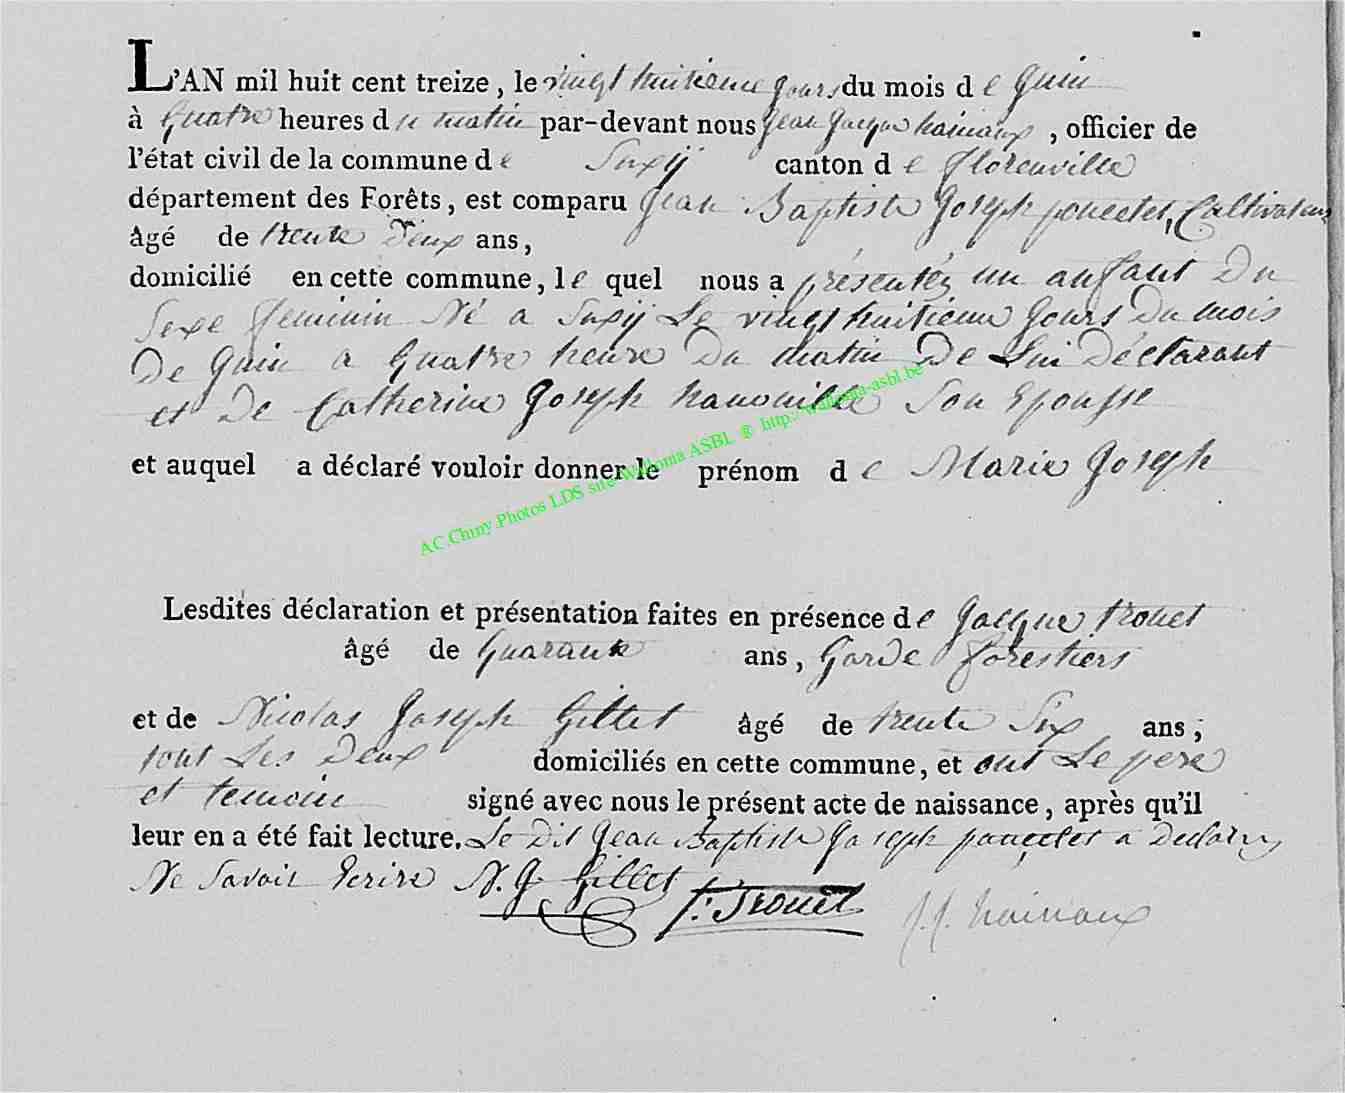 L'AN mil huit cent treize, le vingt huitieme Jours du mois de Juin
à Quatre heures du matin par-devant nous Jean Jacque hainaux, officier de
l'état civil de la commune de Suxÿ canton de florenville
département des Forêts, est comparu Jean Baptiste Joseph poncelet, Cultivateur
âgé de trente Deux ans,
domicilié en cette commune, le quel nous a présentéz un anfant Du
Sexe feminin Né a Suxÿ Le vingt huitieme Jours Du mois
De Juin a Quatre heure Du matin De Lui Déclarant
et De Catherine Joseph hanouille Son Epousse
et auquel a déclaré vouloir donner le prénom de Marie Joseph
AC.Chiny.Photos LDS site Wallonia ASBL ® http://wallonia-asbl.be
Lesdites déclaration et présentation faites en présence de Jacque trouet
âgé de Quarante ans, Garde forestiers
et de Nicolas Joseph Gillet âgé de trente Six ans;
tout Les Deux domiciliés en cette commune, et ont Le pere
et temoin signé avec nous le présent acte de naissance, après qu'il
leur en a été fait lecture. Le Dit Jean Baptiste Joseph poncelet a Declarez
Ne Savoir Ecrire N. J. Gillet J: Trouët J. J. hainaux